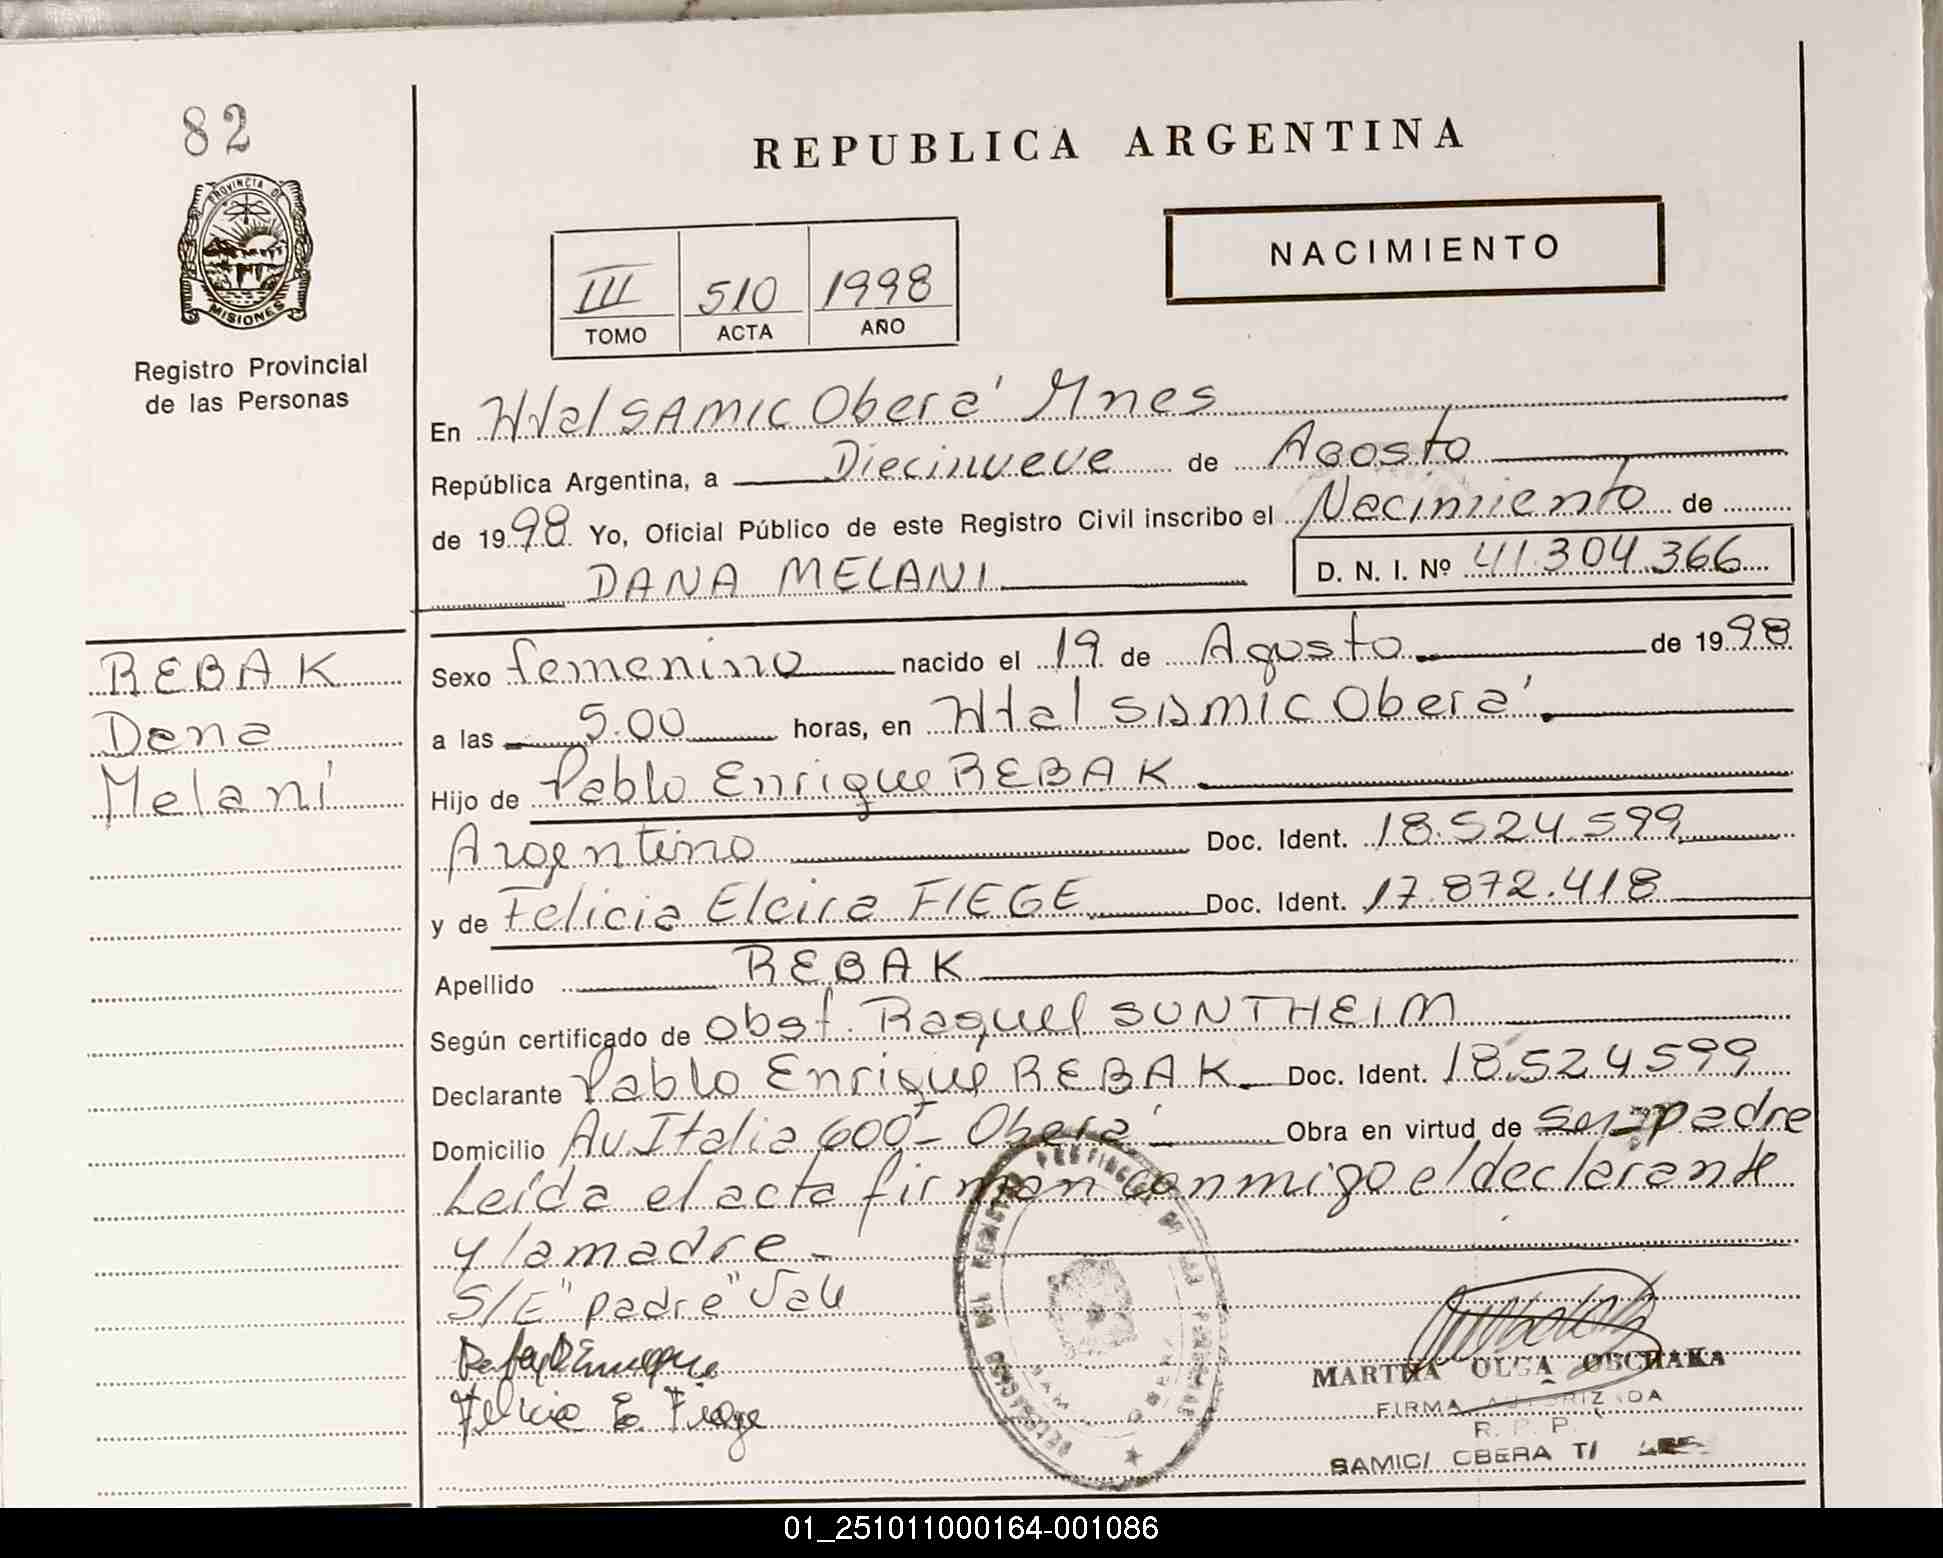 82
REPUBLICA ARGENTINA
PROVINCIA DE
MISIONES
Registro Provincial
de las Personas
III 510 1998
TOMO ACTA AÑO
NACIMIENTO
En Htal SAMIC Oberá Mnes
República Argentina, a Diecinueve de Agosto
de 1998 Yo, Oficial Público de este Registro Civil inscribo el Nacimiento de
DANA MELANI D. N. I. Nº 41.304.366
REBAK
Dana
Melaní
Sexo femenino nacido el 19 de Agosto de 1998
a las 5.00 horas, en Htal SAMIC Oberá
Hijo de Pablo Enrique REBAK
Argentino Doc. Ident. 18.524.599
y de Felicia Elcira FIEGE Doc. Ident. 17.872.418
Apellido REBAK
Según certificado de obst. Raquel SUNTHEIM
Declarante Pablo Enrique REBAK Doc. Ident. 18.524599
Domicilio Av. Italia 600 - Oberá Obra en virtud de ser padre
Leída el acta firman conmigo el declarante
y la madre -
S/E "padre" Vale
Felicia E. Fiege
MARTHA OLGA OBCHAKA
FIRMA AUTORIZADA
R. P. P.
SAMIC/ OBERA T/
01_251011000164-001086